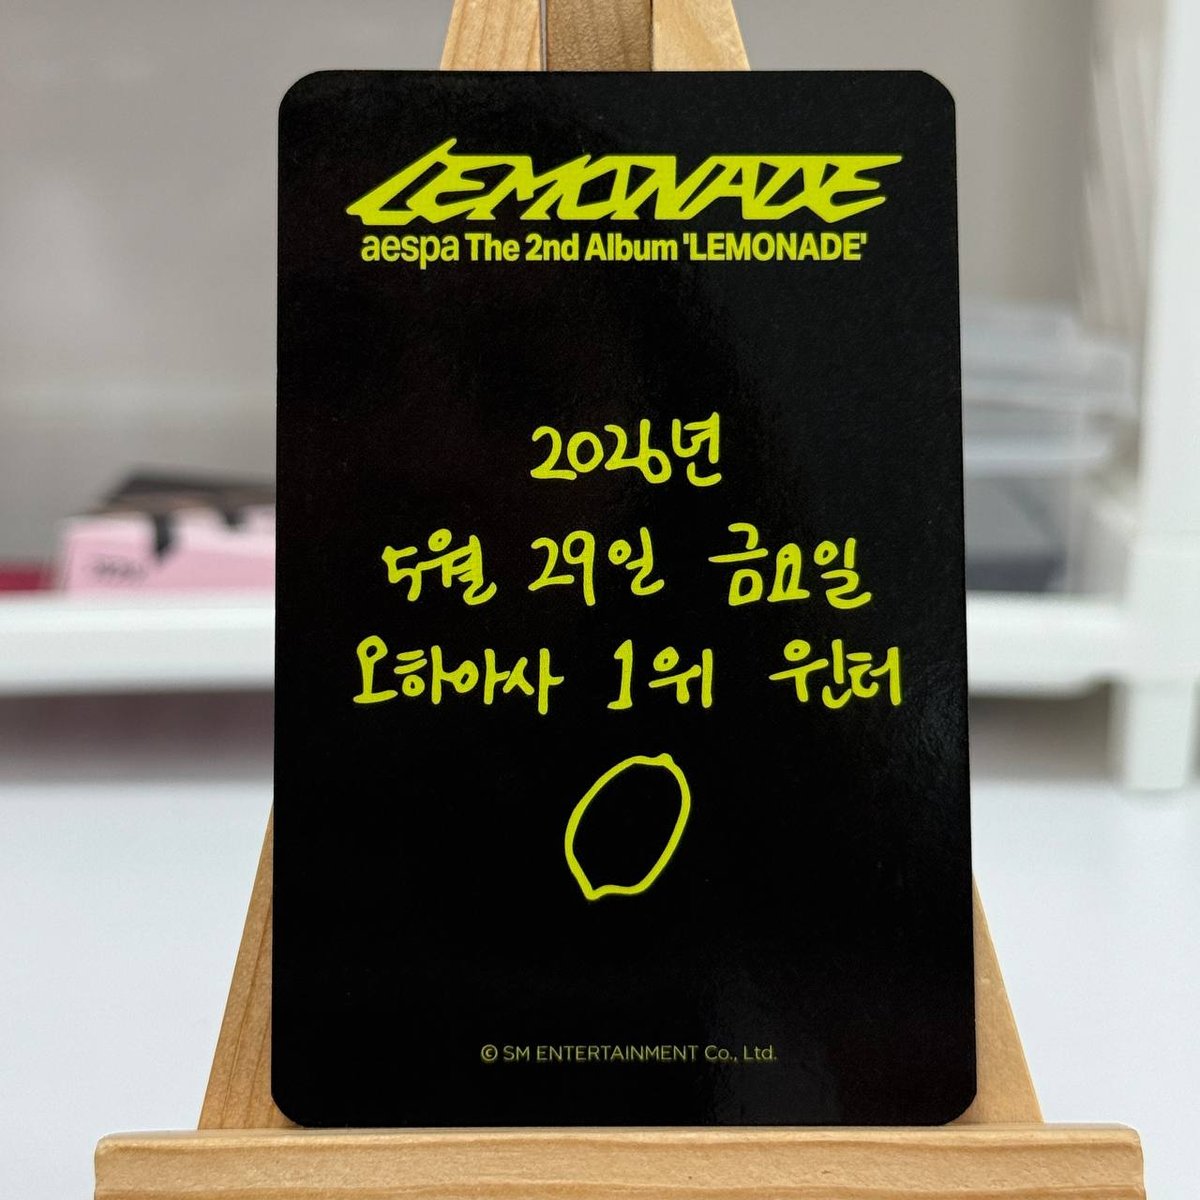 LEMONADE
aespa The 2nd Album 'LEMONADE'
2026년
5월 29일 금요일
오하아사 1위 윈터
© SM ENTERTAINMENT Co., Ltd.